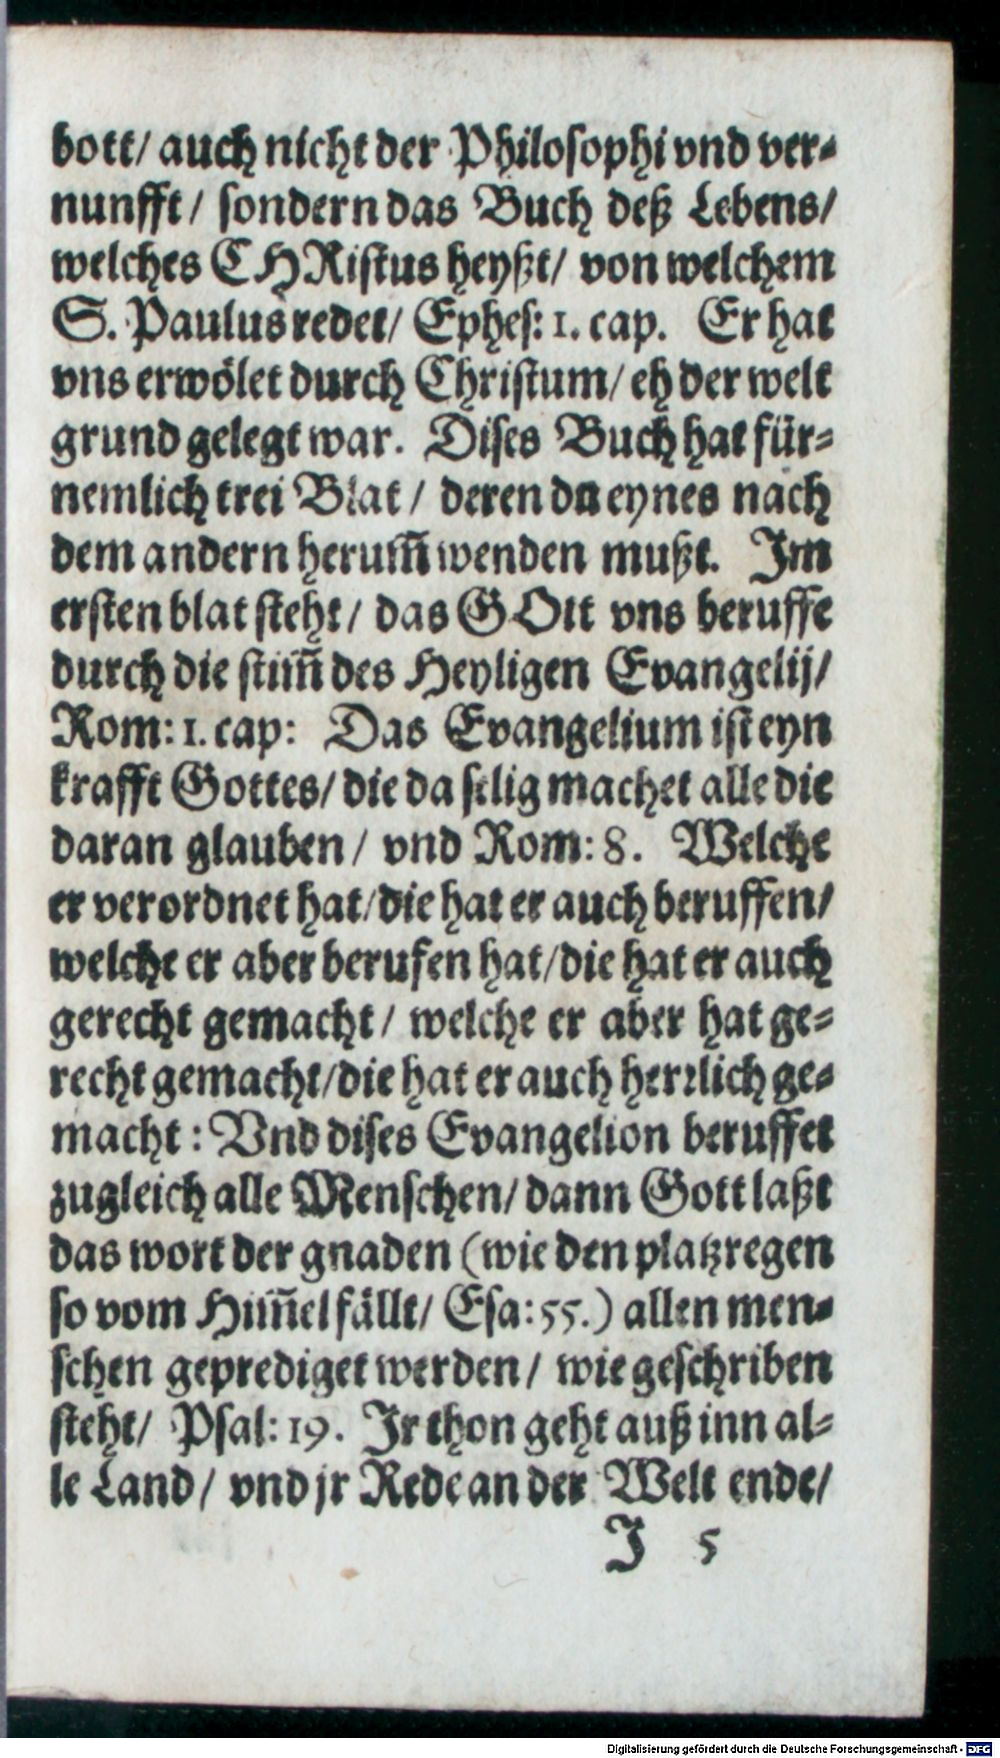 bott/ auch nicht der Philosophi vnd ver-
nunfft/ sondern das Buch deß Lebens/
welches CHRistus heyßt/ von welchem
S. Paulus redet/ Ephes: 1. cap. Er hat
vns erwölet durch Christum/ eh der welt
grund gelegt war. Dises Buch hat für-
nemlich trei Blat/ deren du eynes nach
dem andern herum̃ wenden mußt. Im
ersten blat steht/ das GOtt vns beruffe
durch die stim̃ des Heyligen Evangelij/
Rom: 1. cap: Das Evangelium ist eyn
krafft Gottes/ die da selig machet alle die
daran glauben/ vnd Rom: 8. Welche
er verordnet hat/ die hat er auch beruffen/
welche er aber berufen hat/ die hat er auch
gerecht gemacht/ welche er aber hat ge-
recht gemacht/ die hat er auch herrlich ge-
macht: Vnd dises Evangelion beruffet
zugleich alle Menschen/ dann Gott laßt
das wort der gnaden (wie den platzregen
so vom Him̃el fällt/ Esa: 55.) allen men-
schen geprediget werden/ wie geschriben
steht/ Psal: 19. Ir thon geht auß inn al-
le Land/ vnd jr Rede an der Welt ende/
I 5
Digitalisierung gefördert durch die Deutsche Forschungsgemeinschaft - DFG